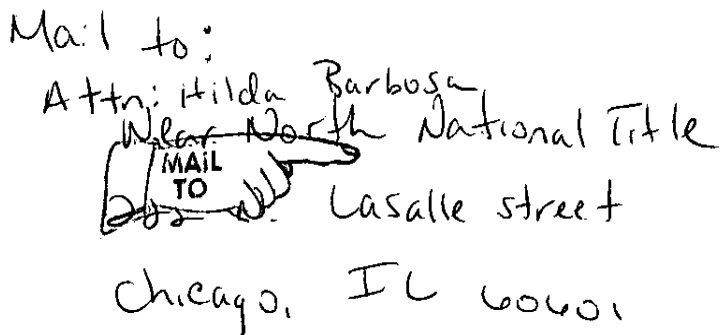 Mail to:
Attn: Hilda Barbosa
Near North National Title
MAIL
TO
222 N. Lasalle street
Chicago, IL 60601